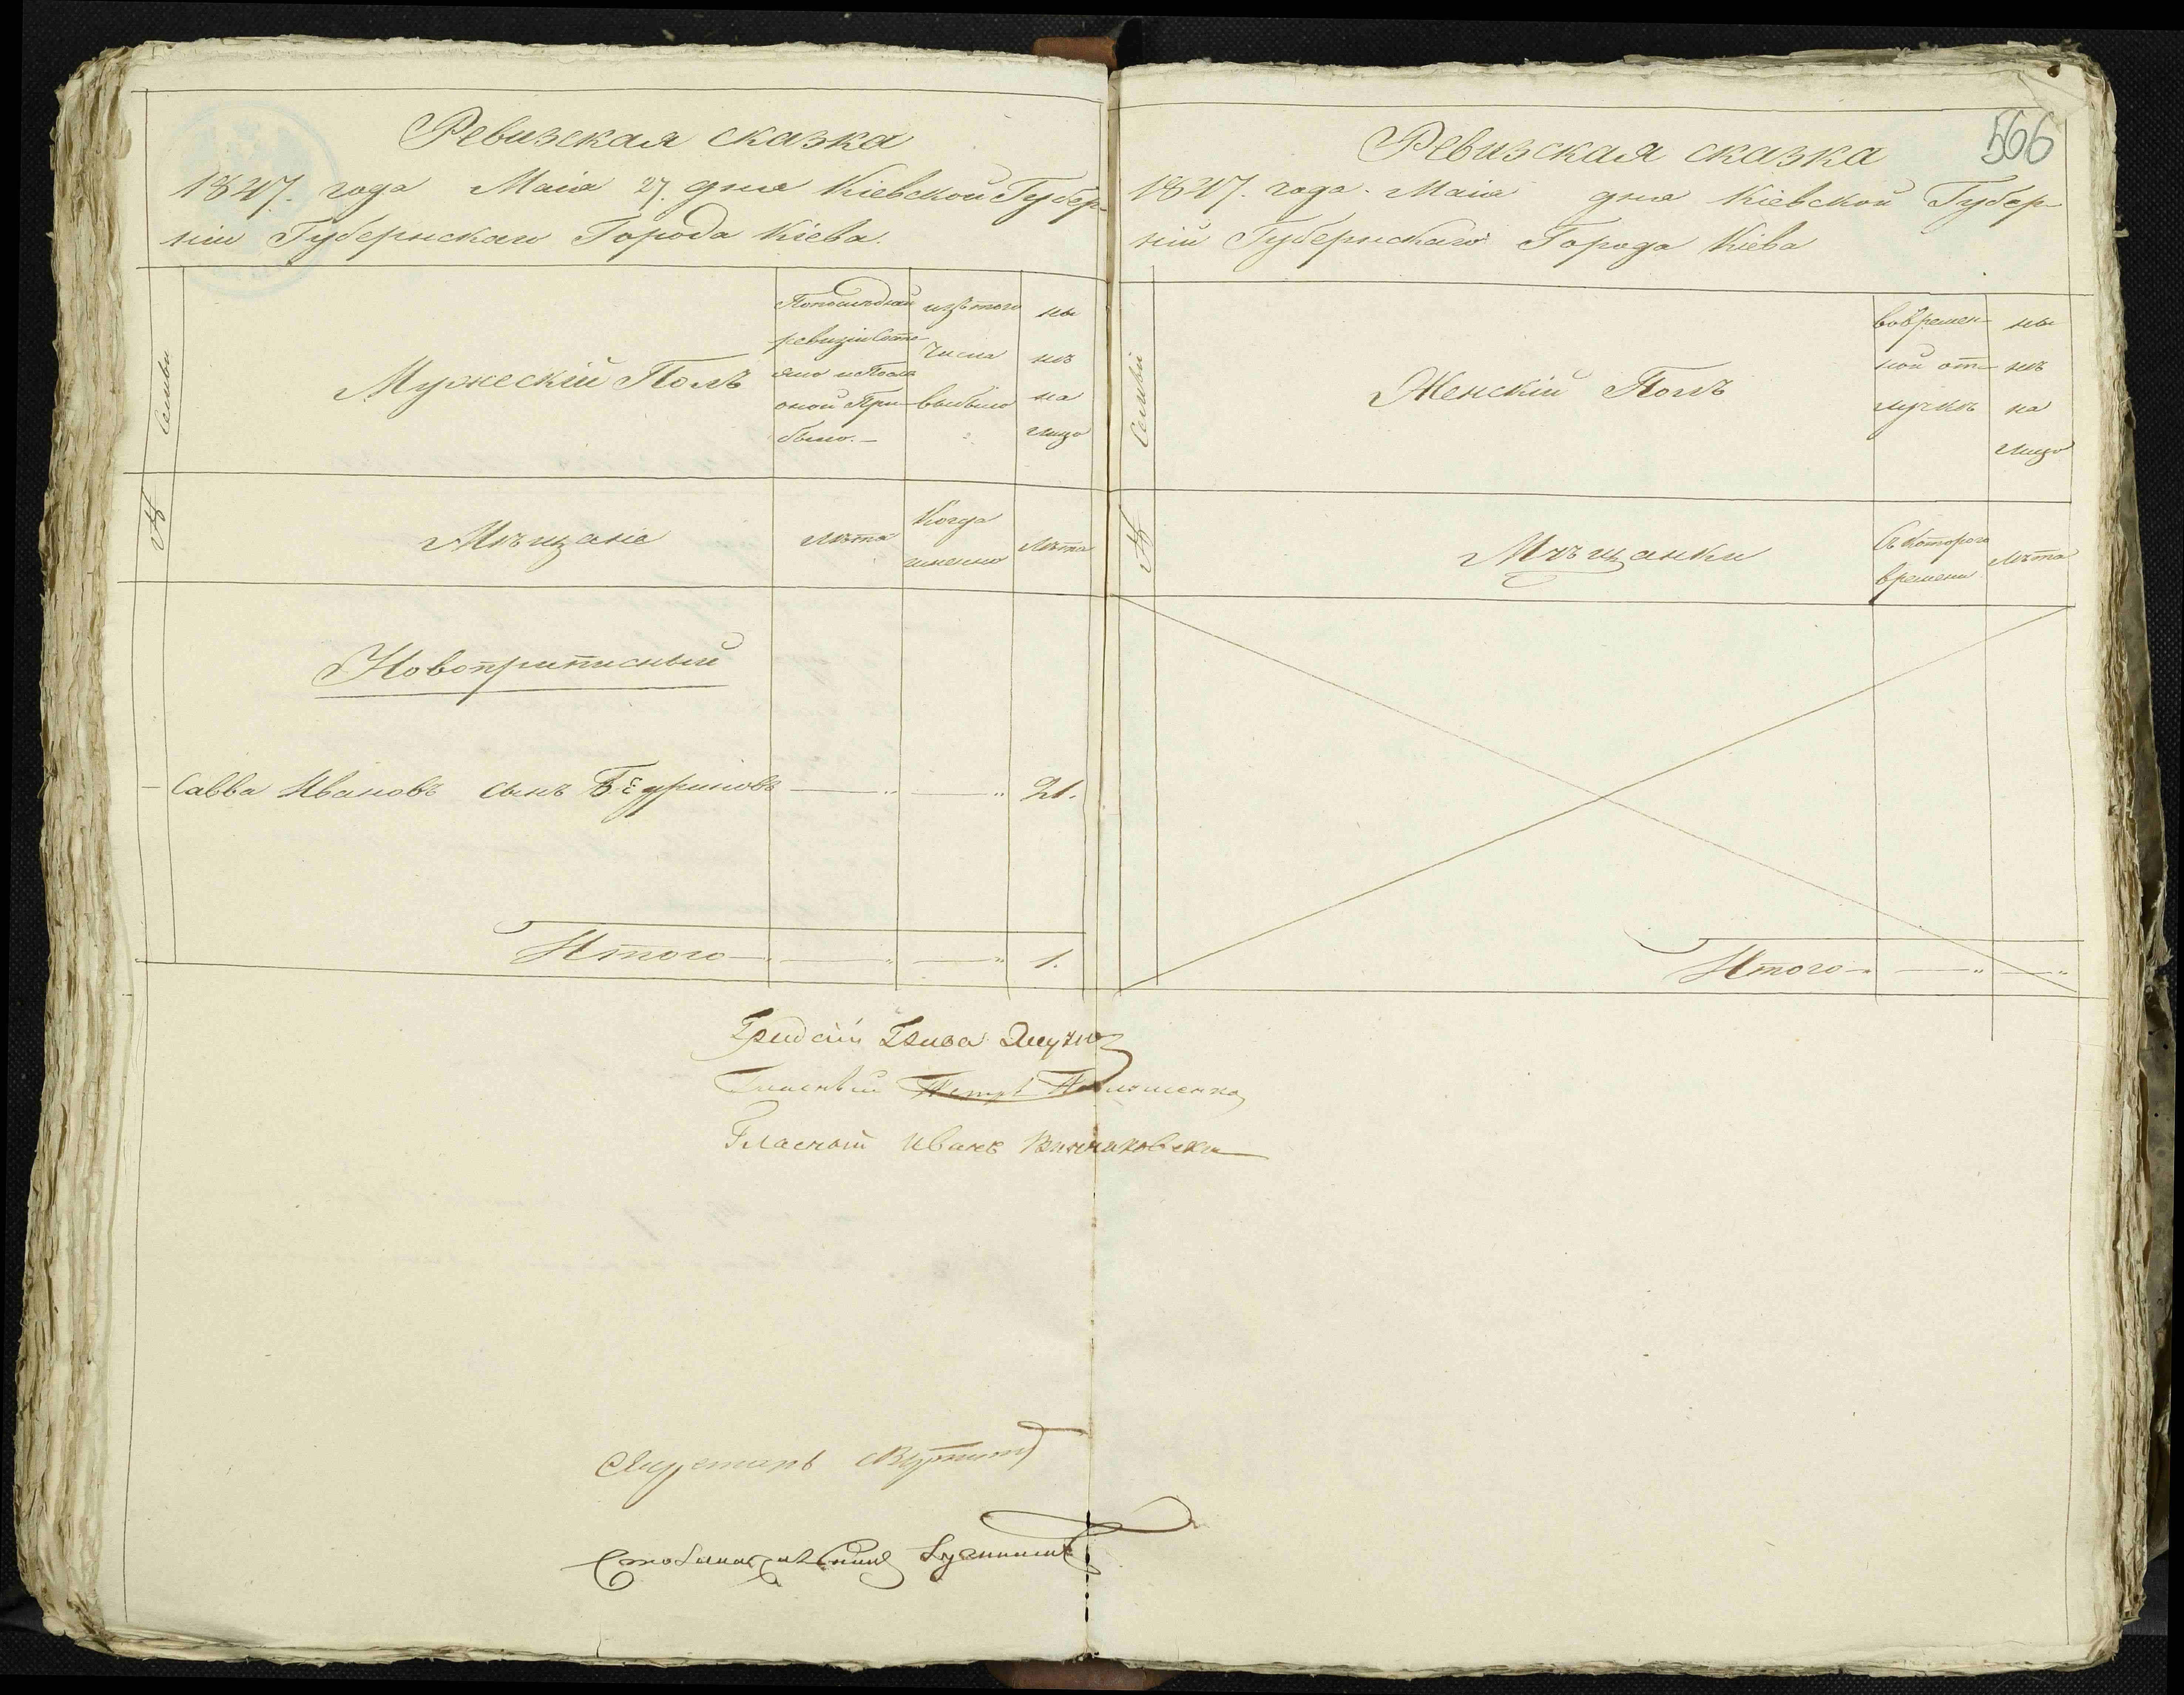 Ревизская сказка
1847. года Маія 27. дня Кіевской Губер-
ніи Губернскаго Города Кіева.
Семьи
Мужескій Полъ
По последней
ревизіи состо-
яло и После
оной При-
было. —
изътого
числа
выбыло
ны
нѣ
на
лицо
№
Мѣщане
Лѣта
Когда
именно
Лѣта
Новоприписный
Савва Ивановъ сынъ Бедриновъ — „ — „ 21.
Итого — „ — „ — „ 1.
Гласный Иванъ
Секретарь
Столоначальникъ
566
Ревизская сказка
1847. года. Маія дня Кіевской Губер-
ніи Губернскаго Города Кіева
Семьи
Женскій Полъ
вовремен-
ной от-
лучкѣ
ны
нѣ
на
лицо
№
Мѣщанки
Съ котораго
времени
Лѣта
Итого — „ — „ — „